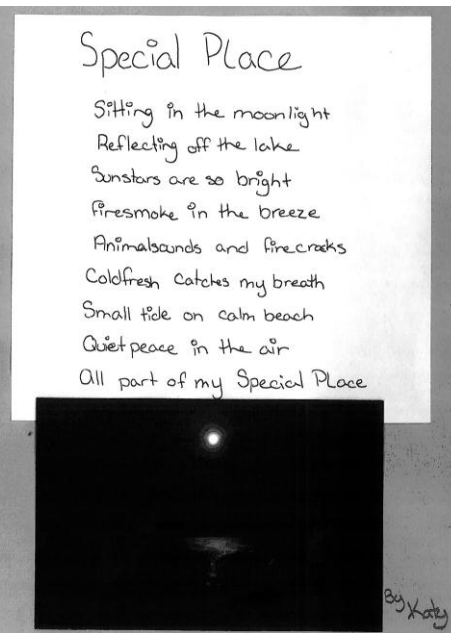 Special Place
Sitting in the moonlight
Reflecting off the lake
Sunstars are so bright
Firesmoke in the breeze
Animalsounds and firecracks
Coldfresh catches my breath
Small tide on calm beach
Quietpeace in the air
All part of my Special Place
By Katy